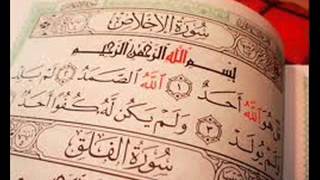 سُورَةُ الْإِخْلَاصِ
بِسْمِ اللَّهِ الرَّحْمَٰنِ الرَّحِيمِ
قُلْ هُوَ اللَّهُ أَحَدٌ ١ اللَّهُ الصَّمَدُ ٢ لَمْ يَلِدْ
وَلَمْ يُولَدْ ٣ وَلَمْ يَكُن لَّهُ كُفُوًا أَحَدٌ
سُورَةُ الْفَلَقِ